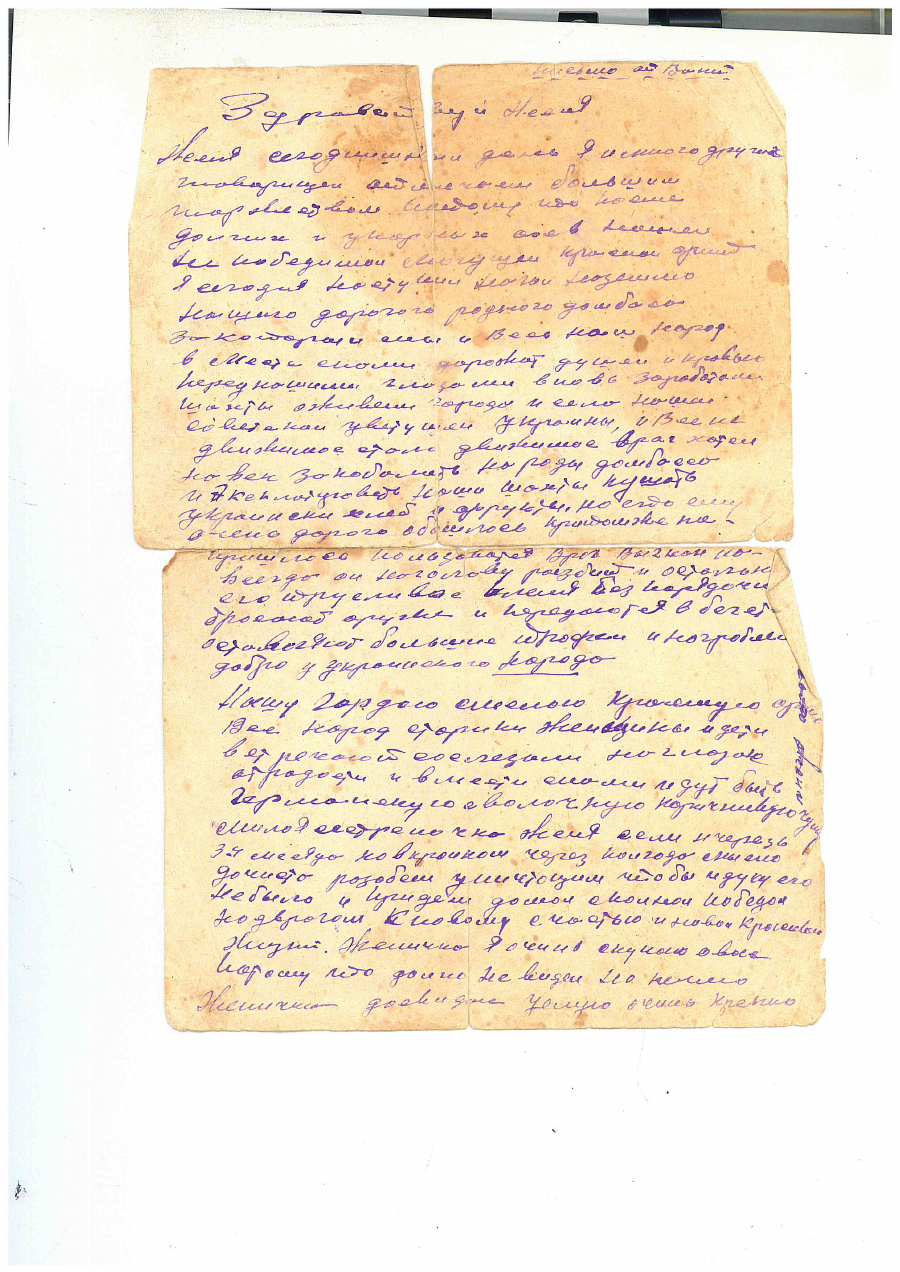 письмо от Вани
Здравствуй Женя
Женя сегодняшний день я и много других
товарищей отмечаем большим
торжеством потому что после
долгих и упорных боев нашей
не победимой могущей красной армией
я сегодня наступил ногой на землю
нашего дорогого родного домбаса
за который мы и весь наш народ
в месте снами дорожат душей и кровью
перед нашими глазами вновь заработали
шахты оживели города и села нашей
советской цветущей украины, и все не
движимое стало движимое враг хотел
на век закабалить народы домбаса
и эксплотировать наши шахты кушать
украински хлеб и фрукты, но ето ему
очень дорого обошлось кратоже не
пришлось пользоватся враг выгнон на-
всегда он наголову разбит и остальн
его трусливое племя без порядочн
бросают оружия и передаются в бегст
оставляют большие трофеи и награблен
добро у украинского народа
Нашу гордою смелою красную арми
Весь народ старики женщины и дети
встречают сослезами на глазах
отрадости и вмести снами идут быть
Германскую сволочную коричневую чуму
милоя сестреночка женя если нчерезь
3-4 месяца на вкрайном через полгода смело
дочиста розобем уничтощим чтобы и духу его
небыло и придем домой сполной победой
надврогом к новому счастью и новой красивой
жизни. Женичка я очинь скучаю овас
потому что долго не видел но нечево
Женичка досвидан целую очинь крепко